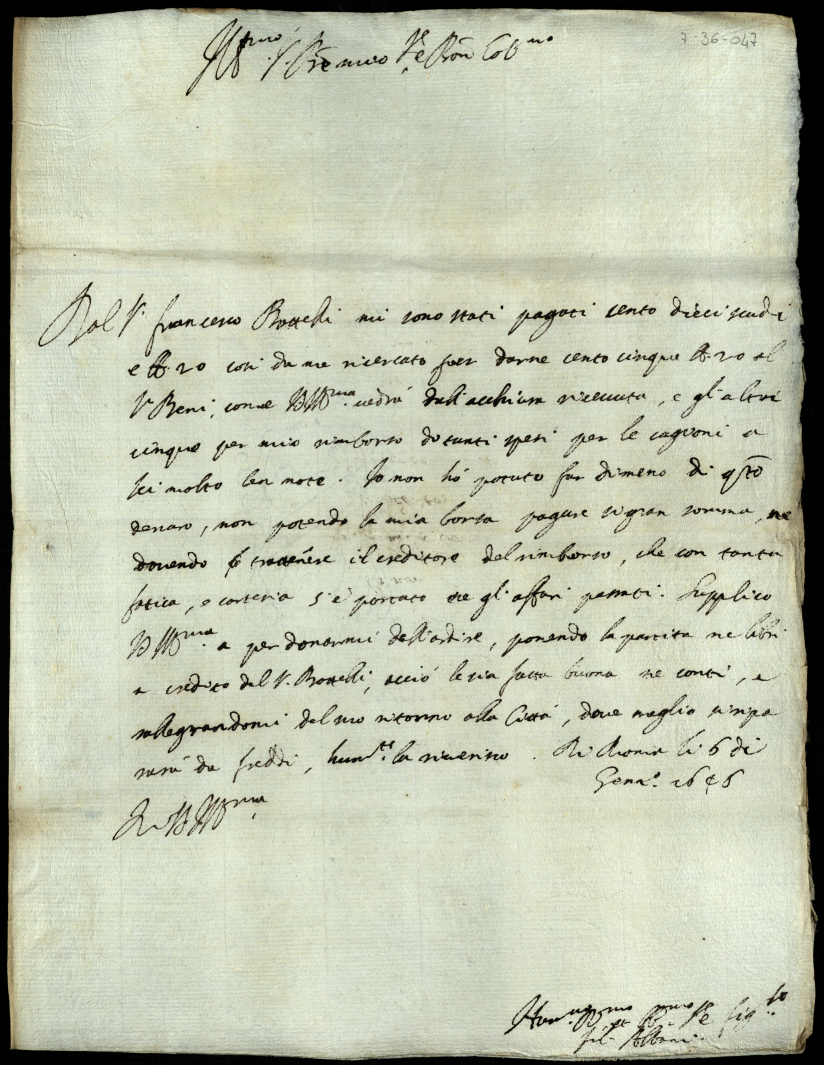 7-36-047
Ill.mo S.r P.re mio S.re P.ron Col.mo
Dal S.r Francesco Bottelli mi sono stati pagati cento dieci scudi
e b. 20 così da me ricercato per darne cento cinque b. 20 al
S.r Beni, come V.S. Ill.ma vedrà dall'acchiusa ricevuta, e gl'altri
cinque per mio rimborso di tanti spesi per le cagioni a
lei molto ben note. Io non hò potuto far dimeno di q.sto
denaro, non potendo la mia borsa pagare sì gran somma, ne
dovendo trattenere il creditore del rimborso, che con tanta
fatica, e cortesia s'è portato ne gli affari passati. Supplico
V.S. Ill.ma a perdonarmi dell'ardire, ponendo la partita ne libri
a credito del S.r Bottelli, acciò le sia fatta buona ne conti, e
rallegrandomi del suo ritorno alla Città, dove meglio si ripa
rarà da freddi, hum.te la riverisco. Di Roma li 6 di
Genn.o 1646
Di V.S. Ill.ma
Hum.mo et S.re fig.lo
Albani